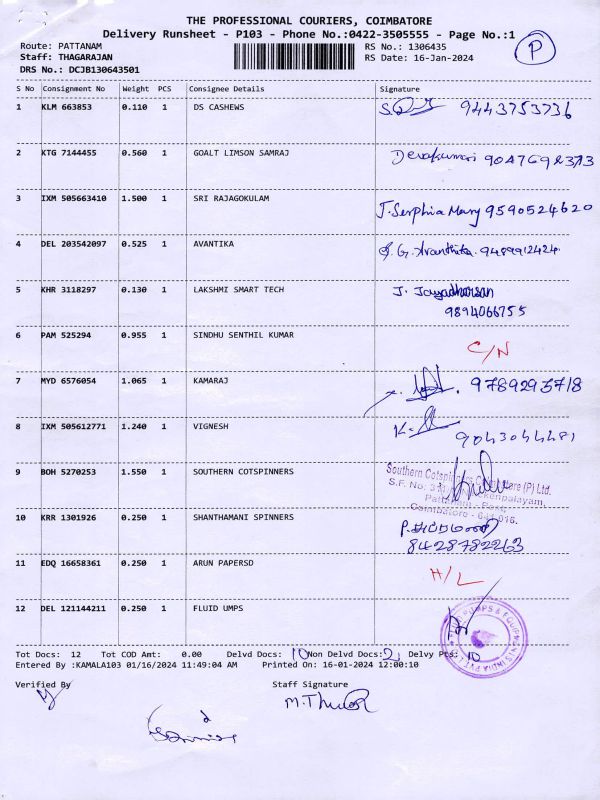 THE PROFESSIONAL COURIERS, COIMBATORE
Delivery Runsheet - P103 - Phone No.:0422-3505555 - Page No.:1
Route: PATTANAM RS No.: 1306435
Staff: THAGARAJAN RS Date: 16-Jan-2024
DRS No.: DCJB130643501
P
S No Consignment No Weight PCS Consignee Details Signature
1 KLM 663853 0.110 1 DS CASHEWS 9443753736
2 KTG 7144455 0.560 1 GOALT LIMSON SAMRAJ Devakumari
3 IXM 505663410 1.500 1 SRI RAJAGOKULAM J. Serphia Mary 9590524620
4 DEL 203542097 0.525 1 AVANTIKA G. Avanthika. 9489912424
5 KHR 3118297 0.130 1 LAKSHMI SMART TECH J. Jayadharsan
9894066755
6 PAM 525294 0.955 1 SINDHU SENTHIL KUMAR C/N
7 MYD 6576054 1.065 1 KAMARAJ 9789295718
8 IXM 505612771 1.240 1 VIGNESH 9043044481
9 BOH 5270253 1.550 1 SOUTHERN COTSPINNERS
Southern Cotspinners (P) Ltd.
S.F. No:
Coimbatore - 641 016.
10 KRR 1301926 0.250 1 SHANTHAMANI SPINNERS
8428782263
11 EDQ 16658361 0.250 1 ARUN PAPERSD H/L
12 DEL 121144211 0.250 1 FLUID UMPS
PUMPS & EQUIPMENTS INDIA PVT. LTD
Tot Docs: 12 Tot COD Amt: 0.00 Delvd Docs: 10 Non Delvd Docs: 2 Delvy Pts: 10
Entered By :KAMALA103 01/16/2024 11:49:04 AM Printed On: 16-01-2024 12:00:10
Verified By Staff Signature